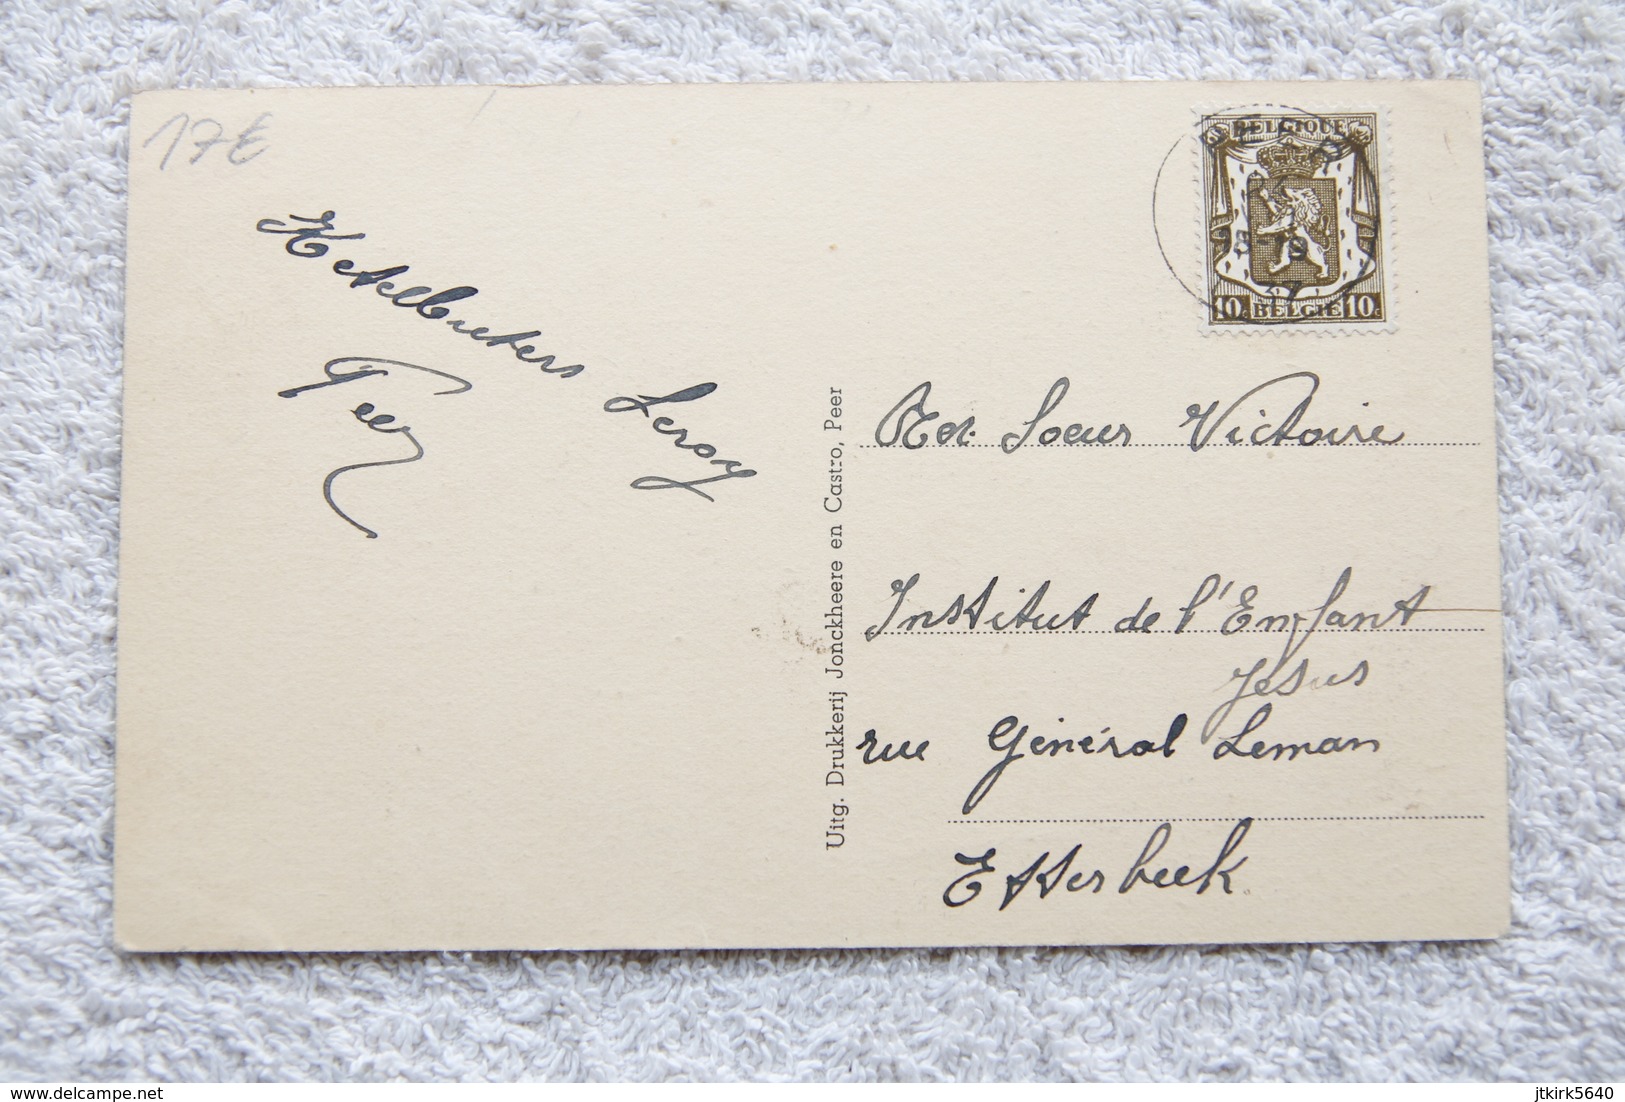 17€
Ketelbuters Leroy
Peer
Uitg. Drukkerij Jonckheere en Castro, Peer
BELGIQUE
PEER
10c BELGIE 10c
Rde Soeur Victoire
Institut de l'Enfant
Jésus
rue Général Leman
Etterbeek
delcampe.net
jtkirk5640